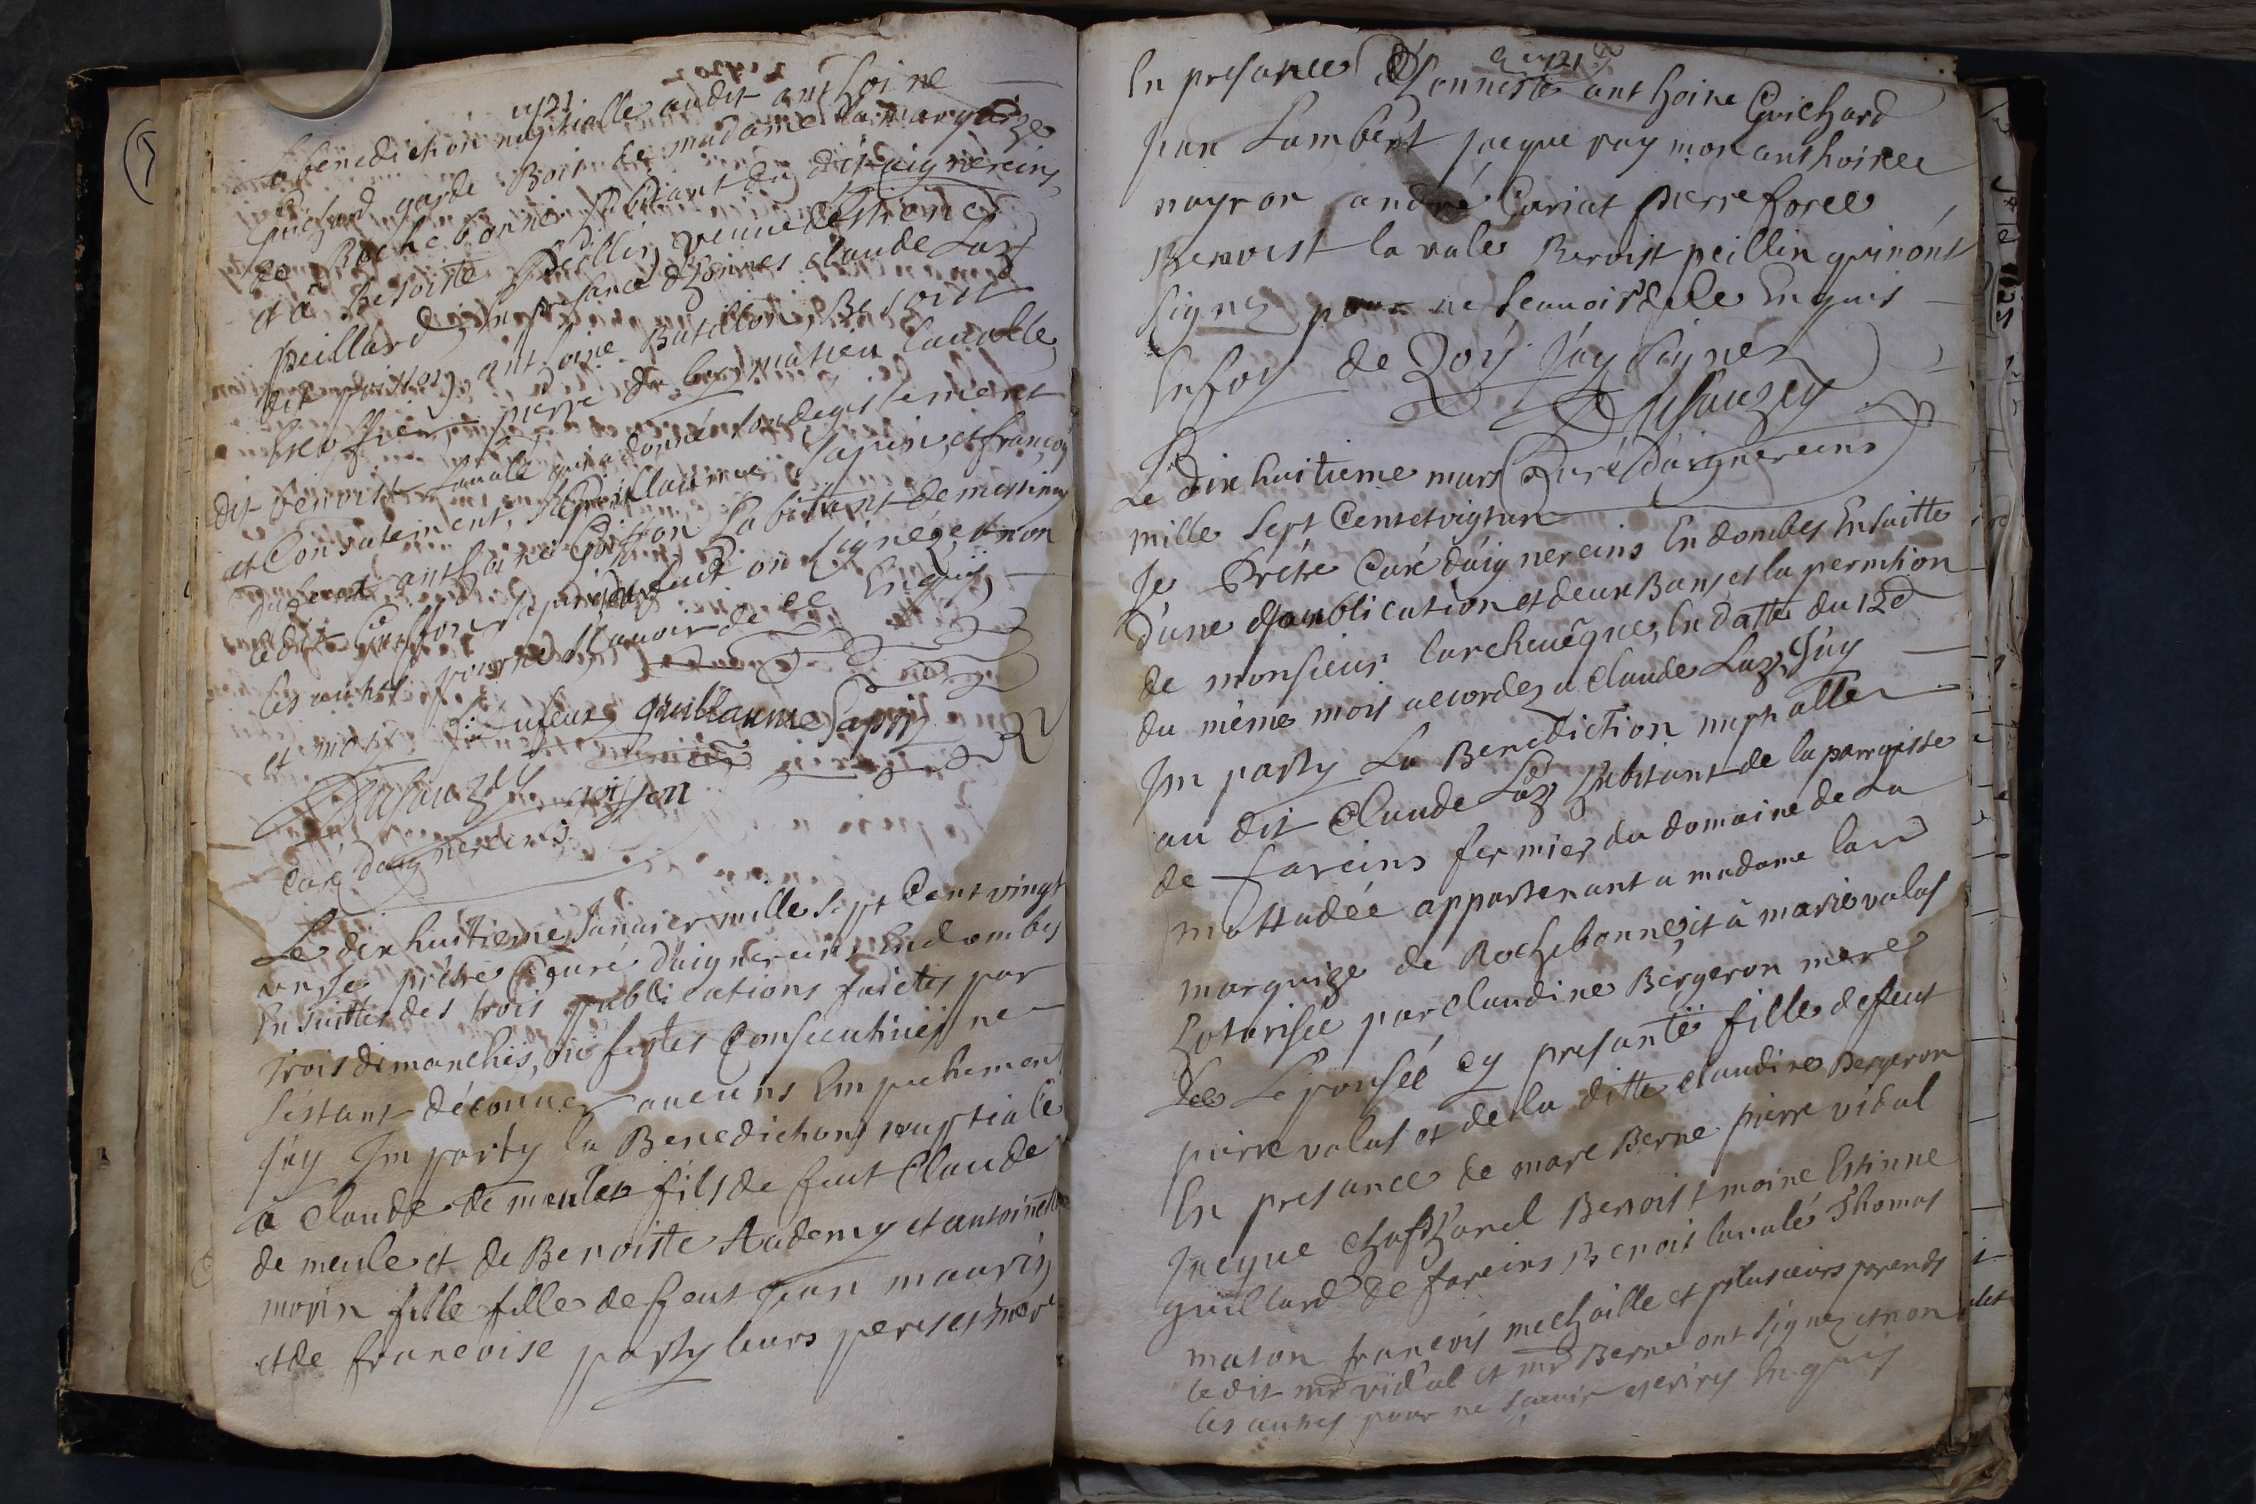 1721
la benediction nuptialle audit anthoine
Guichard garde Bois de madame la marquize
de Rochebonne habitant du dit aignereins
et à Benoiste Peillin veuve de
peillard, en presance d'honnes claude Laz
anthoine Batillon, Benoist
pierre du bost matieu lavalle
dit benoist Lavale qui a donné son
et Consatement, Guillaume Sapin, et françois
anthoine Goiffon habitant de messimy
ledit Goiffon, Sapin, ont signés, et non
les autres pour ne sçavoir de ce Enquis
et moy guillaume Sapin
Dusauzey goiffon
Curé d'aignereins
Le dix huitieme Janvier mille sept Cent vingt
un Je prêtre Curé d'aignereins En dombes
En suitte des trois publications faictes par
trois dimanches, ou festes Consecutives ne
s'estant déconner aucuns Empechement
J'ay Im party la Benediction nuptiale
a Claude de meule fils de feut Claude
de meule et de Benoiste Audemy et antoinette
morin fille fille de feut Jean maurin
et de francoise party leurs peres et mere
1721
En presance d'honneste anthoine Guichard
Jean Lambert Jacque ray mon anthoinee
noyron andré Cariat pierre foree
Benoist la vale Benoist peillin qui n'ont
signez pour ne sçauoir de le Enquis
En foy de Quoy J'ay signez
Dusauzey
Curé d'aignereins
Le dix huitieme mars
mille Sept Cent et vigt un
Je Prétre Curé d'aignereins En dombes En suitte
d'une publication et deux Bans et la permition
de monsieur l'archeuêque, En datte du 12e
du même mois accordez a Claude Laz, J'ay
Im party La Benediction nuptialle
au dit Claude Laz habitant de la parroisse
de fareins fermier du domaine de La
mottadée appartenant a madame la
marquize de Rochebonne, et à marie valas
Lotorisée par claudine Bergeron mere
de Lepousée cy presante fille de feut
pierre valas et de la ditte claudine Bergeron
En presance de marc Berne pierre vidal
Jacque Benoist moine Estienne
guillard de fareins Benoit lavalé Thomas
maton francois mechaille et plusieurs parends
le dit mr vidal et mr Berne ont signez et non
les autres pour ne sçavoir escrires Enquis